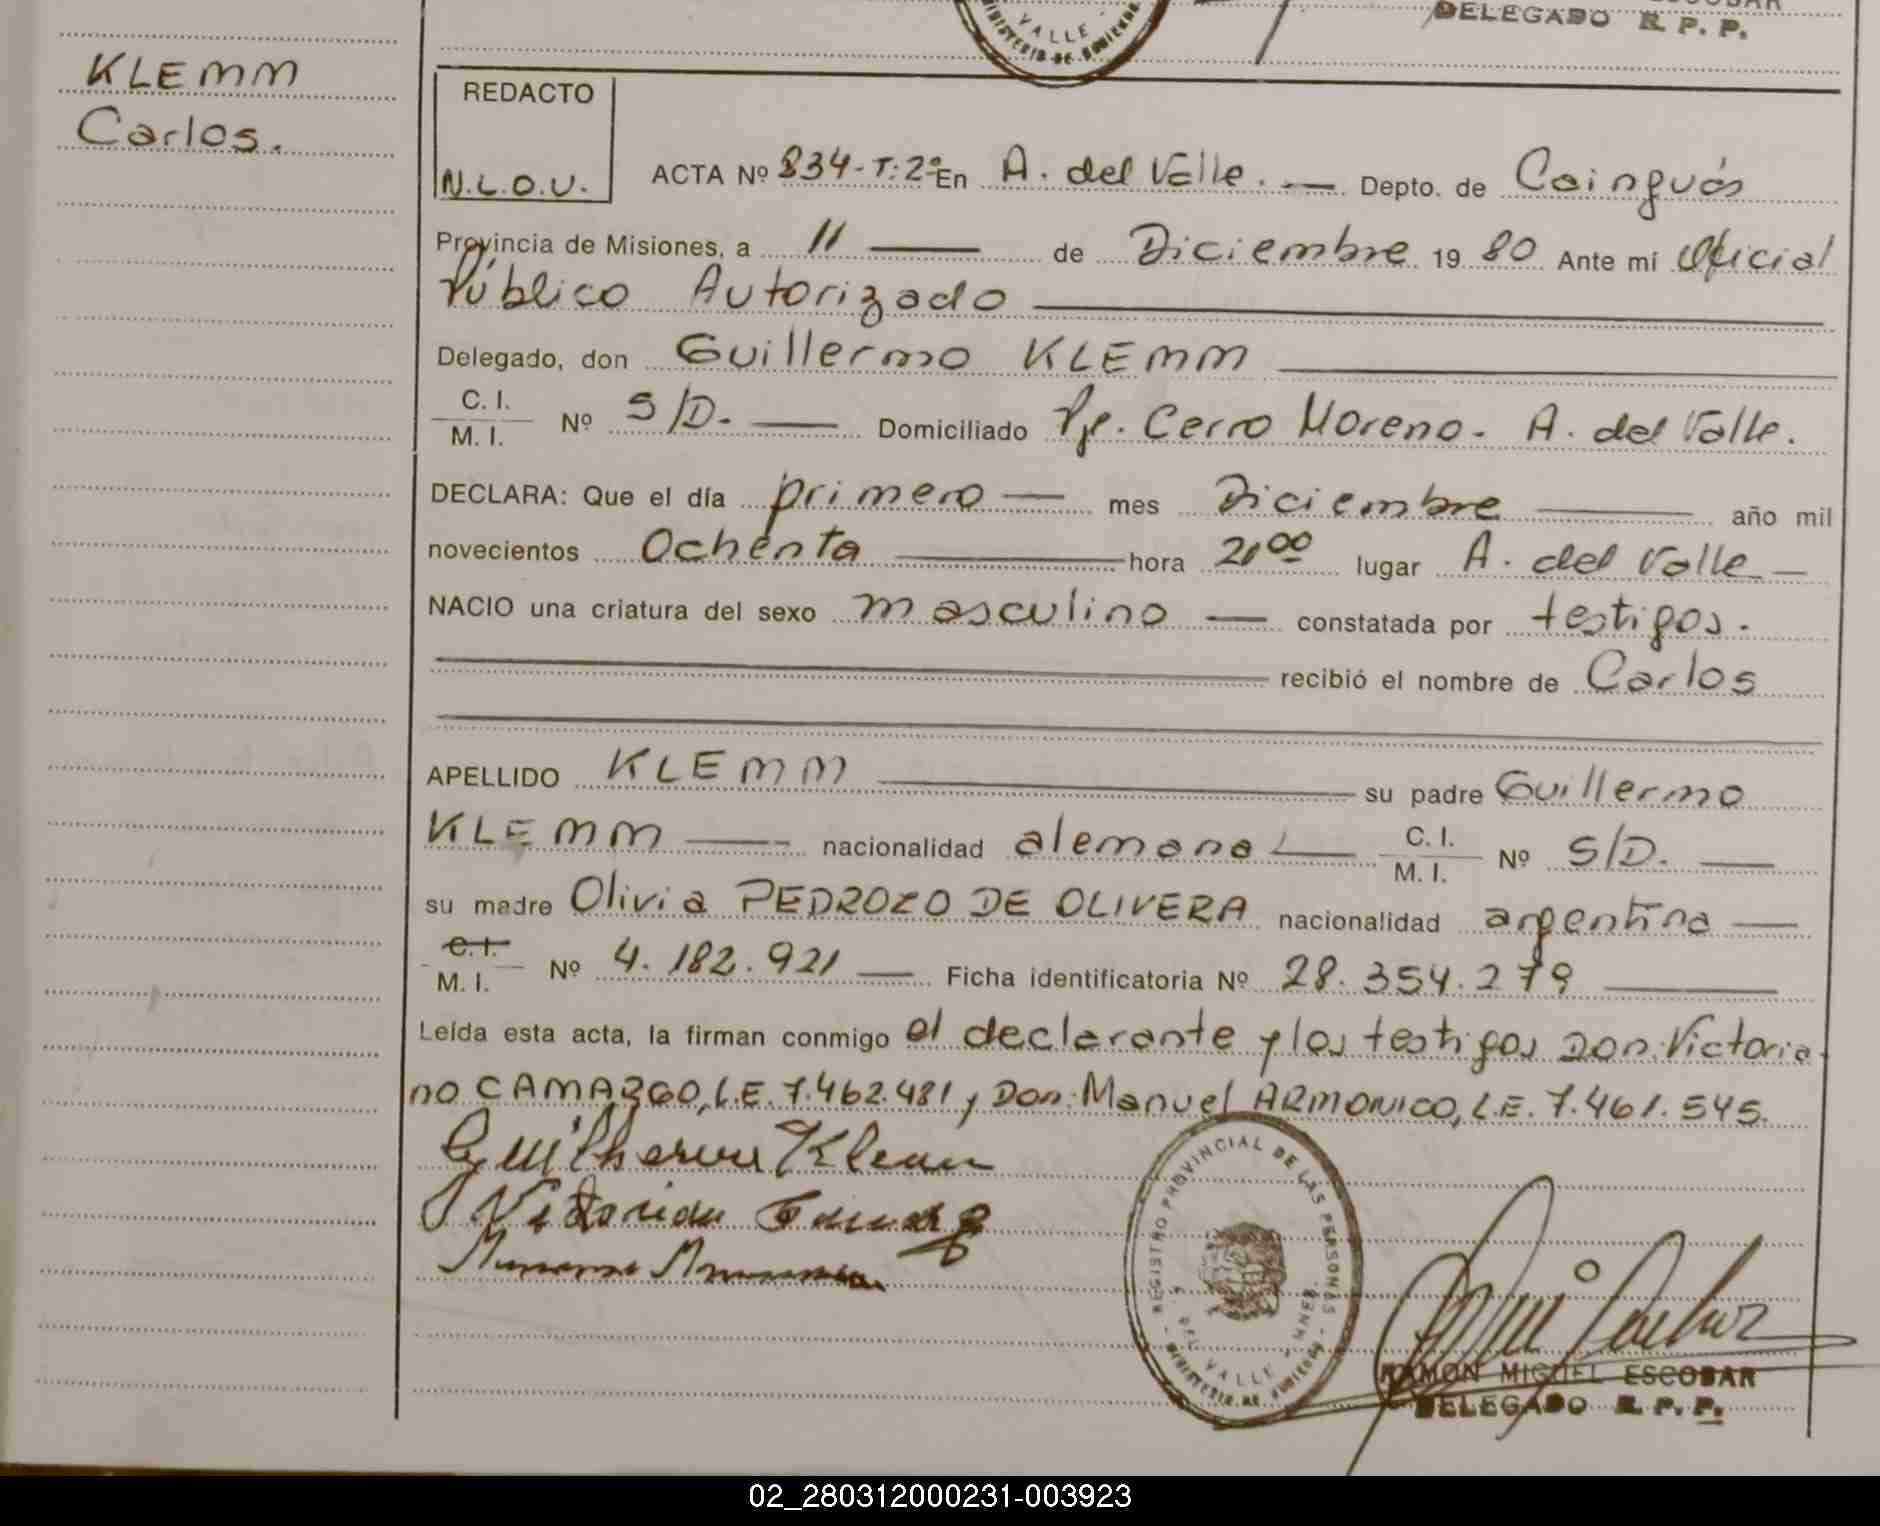 DELEGADO R. P. P.
VALLE
MINISTERIO DE GOBIERNO
KLEMM
Carlos.
REDACTO
N.L.O.U.
ACTA Nº 834-T:2º En A. del Valle. — Depto. de Cainguás
Provincia de Misiones, a 11 — de Diciembre 19 80 Ante mi Oficial
Público Autorizado —
Delegado, don Guillermo KLEMM —
C. I.
M. I. Nº S/D. — Domiciliado Pje. Cerro Moreno. A. del Valle.
DECLARA: Que el día primero — mes Diciembre — año mil
novecientos Ochenta — hora 21 00 lugar A. del Valle —
NACIO una criatura del sexo masculino — constatada por testigos.
— recibió el nombre de Carlos
APELLIDO KLEMM — su padre Guillermo
KLEMM — nacionalidad alemana — C. I. M. I. Nº S/D. —
su madre Olivia PEDROZO DE OLIVERA nacionalidad argentina —
C. I.
M. I. Nº 4.182.921 — Ficha identificatoria Nº 28.354.279 —
Leída esta acta, la firman conmigo el declarante y los testigos Don: Victoria-
no CAMARGO, L.E. 7.462.481 y Don: Manuel ARMONICO, L.E. 7.461.545.
Guilherme Klemm
REGISTRO PROVINCIAL DE LAS PERSONAS
DEL VALLE - MNES.
MINISTERIO DE GOBIERNO
RAMON MIGUEL ESCOBAR
DELEGADO R. P. P.
02_280312000231-003923